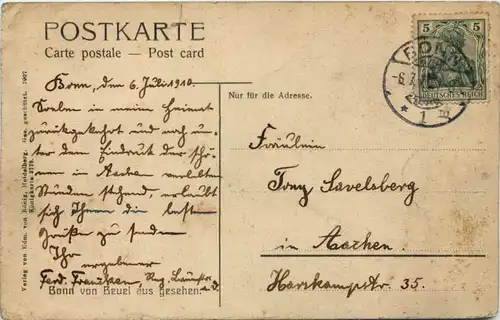 POSTKARTE
Carte postale — Post card
Bonn, den 6. Juli 1910.
Soeben in meine Heimat
zurückgekehrt und noch un-
ter dem Eindruck der schö-
nen in Aachen verlebten
Stunden stehend, erlaubt
sich Ihnen die besten
Grüße zu senden
Ihr
ergebener
Ferd. Franzken,
Bonn von Beuel aus gesehen.
Verlag von Edm. von König, Heidelberg. Ges. geschützt. 1907
Nur für die Adresse.
Fräulein
Tony Savelsberg
in Aachen.
Harskampstr. 35.
5 5
DEUTSCHES REICH
BONN
1